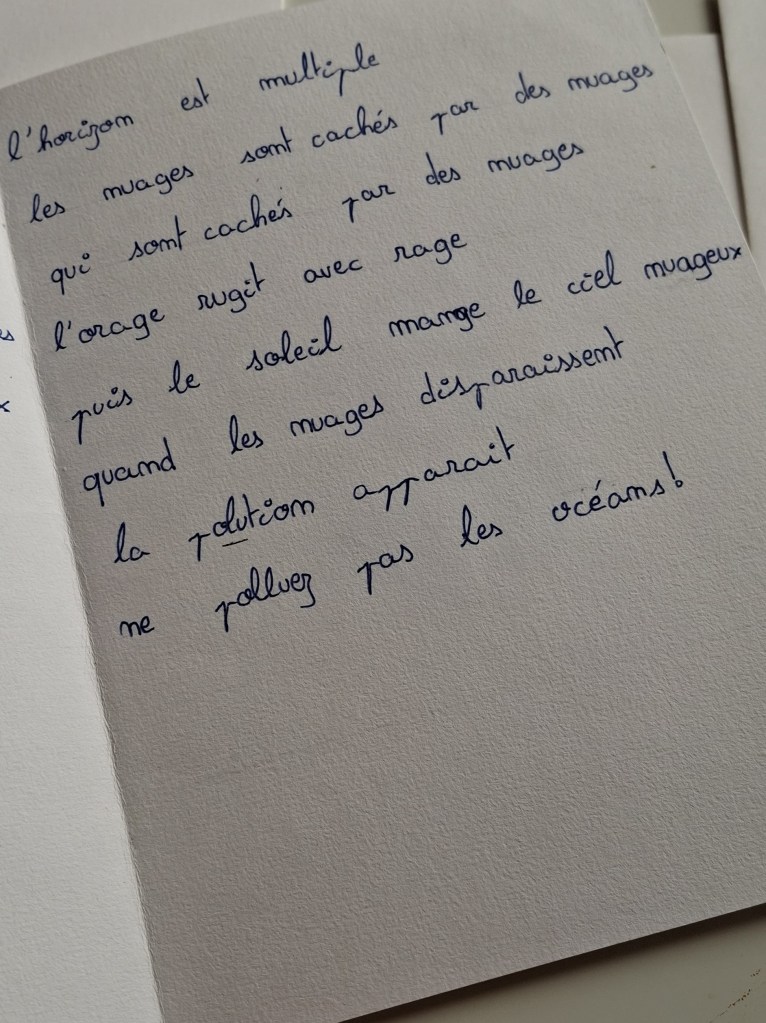 l'horizon est multiple
les nuages sont cachés par des nuages
qui sont cachés par des nuages
l'orage rugit avec rage
puis le soleil mange le ciel nuageux
quand les nuages disparaissent
la polution apparait
ne polluez pas les océans!